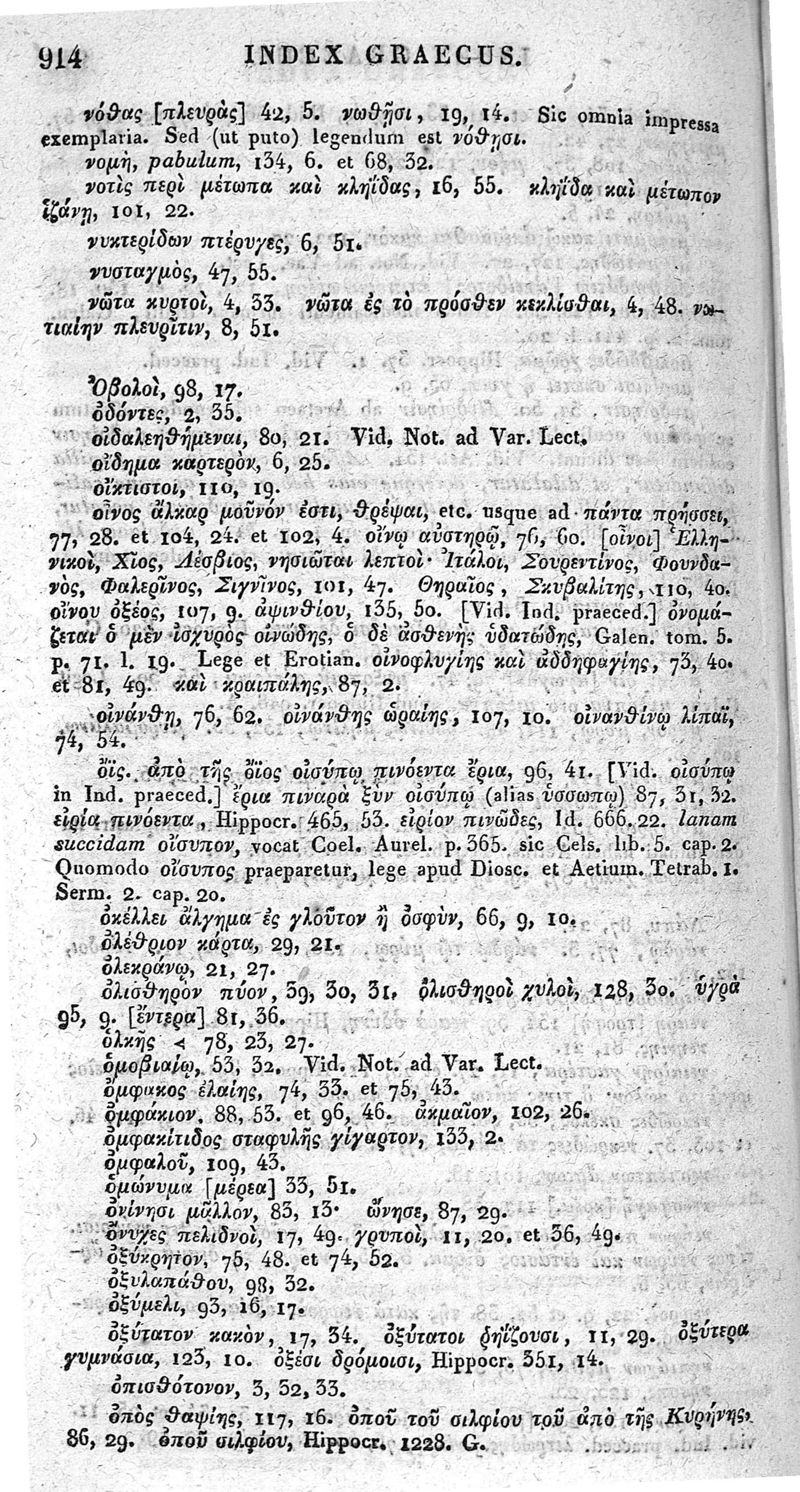 914 INDEX GRAECUS.
νόθας [πλευρὰς] 42, 5. νωθῇσι, 19, 14. Sic omnia impressa
exemplaria. Sed (ut puto) legendum est νόθῃσι.
νομὴ, pabulum, 134, 6. et 68, 32.
νοτὶς περὶ μέτωπα καὶ κληῗδας, 16, 55. κληῗδα καὶ μέτωπον
ἱζάνῃ, 101, 22.
νυκτερίδων πτέρυγες, 6, 51.
νυσταγμὸς, 47, 55.
νῶτα κυρτοὶ, 4, 33. νῶτα ἐς τὸ πρόσθεν κεκλίσθαι, 4, 48. νω-
τιαίην πλευρῖτιν, 8, 51.
Ὀβολοὶ, 98, 17.
ὀδόντες, 2, 35.
οἰδαλεηθήμεναι, 80, 21. Vid. Not. ad Var. Lect.
οἴδημα καρτερὸν, 6, 25.
οἴκτιστοι, 110, 19.
οἶνος ἄλκαρ μοῦνόν ἐστι, θρέψαι, etc. usque ad πάντα πρήσσει,
77, 28. et 104, 24. et 102, 4. οἴνῳ αὐστηρῷ, 76, 60. [οἶνοι] Ἑλλη-
νικοὶ, Χῖος, Λέσβιος, νησιῶται λεπτοί· Ἰτάλοι, Σουρεντίνος, Φουνδα-
νὸς, Φαλερῖνος, Σιγνῖνος, 101, 47. Θηραῖος, Σκυβαλίτης, 110, 40.
οἴνου ὀξέος, 107, 9. ἀψινθίου, 135, 50. [Vid. Ind. praeced.] ὀνομά-
ζεται ὁ μὲν ἰσχυρὸς οἰνώδης, ὁ δὲ ἀσθενὴς ὑδατώδης, Galen. tom. 5.
p. 71. l. 19. Lege et Erotian. οἰνοφλυγίης καὶ ἀδδηφαγίης, 73, 40.
et 81, 49. καὶ κραιπάλης, 87, 2.
οἰνάνθη, 76, 62. οἰνάνθης ὡραίης, 107, 10. οἰνανθίνῳ λίπαϊ,
74, 54.
ὄϊς. ἀπὸ τῆς ὄϊος οἰσύπῳ πινόεντα ἔρια, 96, 41. [Vid. οἰσύπῳ
in Ind. praeced.] ἔρια πιναρὰ ξὺν οἰσύπῳ (alias ὑσσωπῳ) 87, 31, 32.
εἰρία πινόεντα, Hippocr. 465, 53. εἰρίον πινῶδες, Id. 666. 22. lanam
succidam οἴσυπον, vocat Coel. Aurel. p. 365. sic Cels. lib. 5. cap. 2.
Quomodo οἴσυπος praeparetur, lege apud Diosc. et Aetium. Tetrab. 1.
Serm. 2. cap. 20.
ὀκέλλει ἄλγημα ἐς γλοῦτον ἢ ὀσφὺν, 66, 9, 10.
ὀλέθριον κάρτα, 29, 21.
ὀλεκράνῳ, 21, 27.
ὀλισθηρὸν πύον, 39, 30, 31. ὀλισθηροὶ χυλοὶ, 128, 30. ὑγρὰ
95, 9. [ἔντερα] 81, 36.
ὁλκῆς < 78, 23, 27.
ὁμοβιαίῳ, 53, 32. Vid. Not. ad Var. Lect.
ὄμφακος ἐλαίης, 74, 33. et 75, 43.
ὀμφάκιον, 88, 53. et 96, 46. ἀκμαῖον, 102, 26.
ὀμφακίτιδος σταφυλῆς γίγαρτον, 133, 2.
ὀμφαλοῦ, 109, 43.
ὁμώνυμα [μέρεα] 33, 51.
ὀνίνησι μᾶλλον, 83, 13· ὤνησε, 87, 29.
ὄνυχες πελιδνοὶ, 17, 49. γρυποὶ, 11, 20. et 36, 49.
ὀξύκρητον, 75, 48. et 74, 52.
ὀξυλαπάθου, 98, 32.
ὀξύμελι, 93, 16, 17.
ὀξύτατον κακὸν, 17, 34. ὀξύτατοι δηΐζουσι, 11, 29. ὀξύτερα
γυμνάσια, 123, 10. ὀξέσι δρόμοισι, Hippocr. 351, 14.
ὀπισθότονον, 3, 32, 33.
ὀπὸς θαψίης, 117, 16. ὀποῦ τοῦ σιλφίου τοῦ ἀπὸ τῆς Κυρήνης,
86, 29. ὀποῦ σιλφίου, Hippocr. 1228. G.